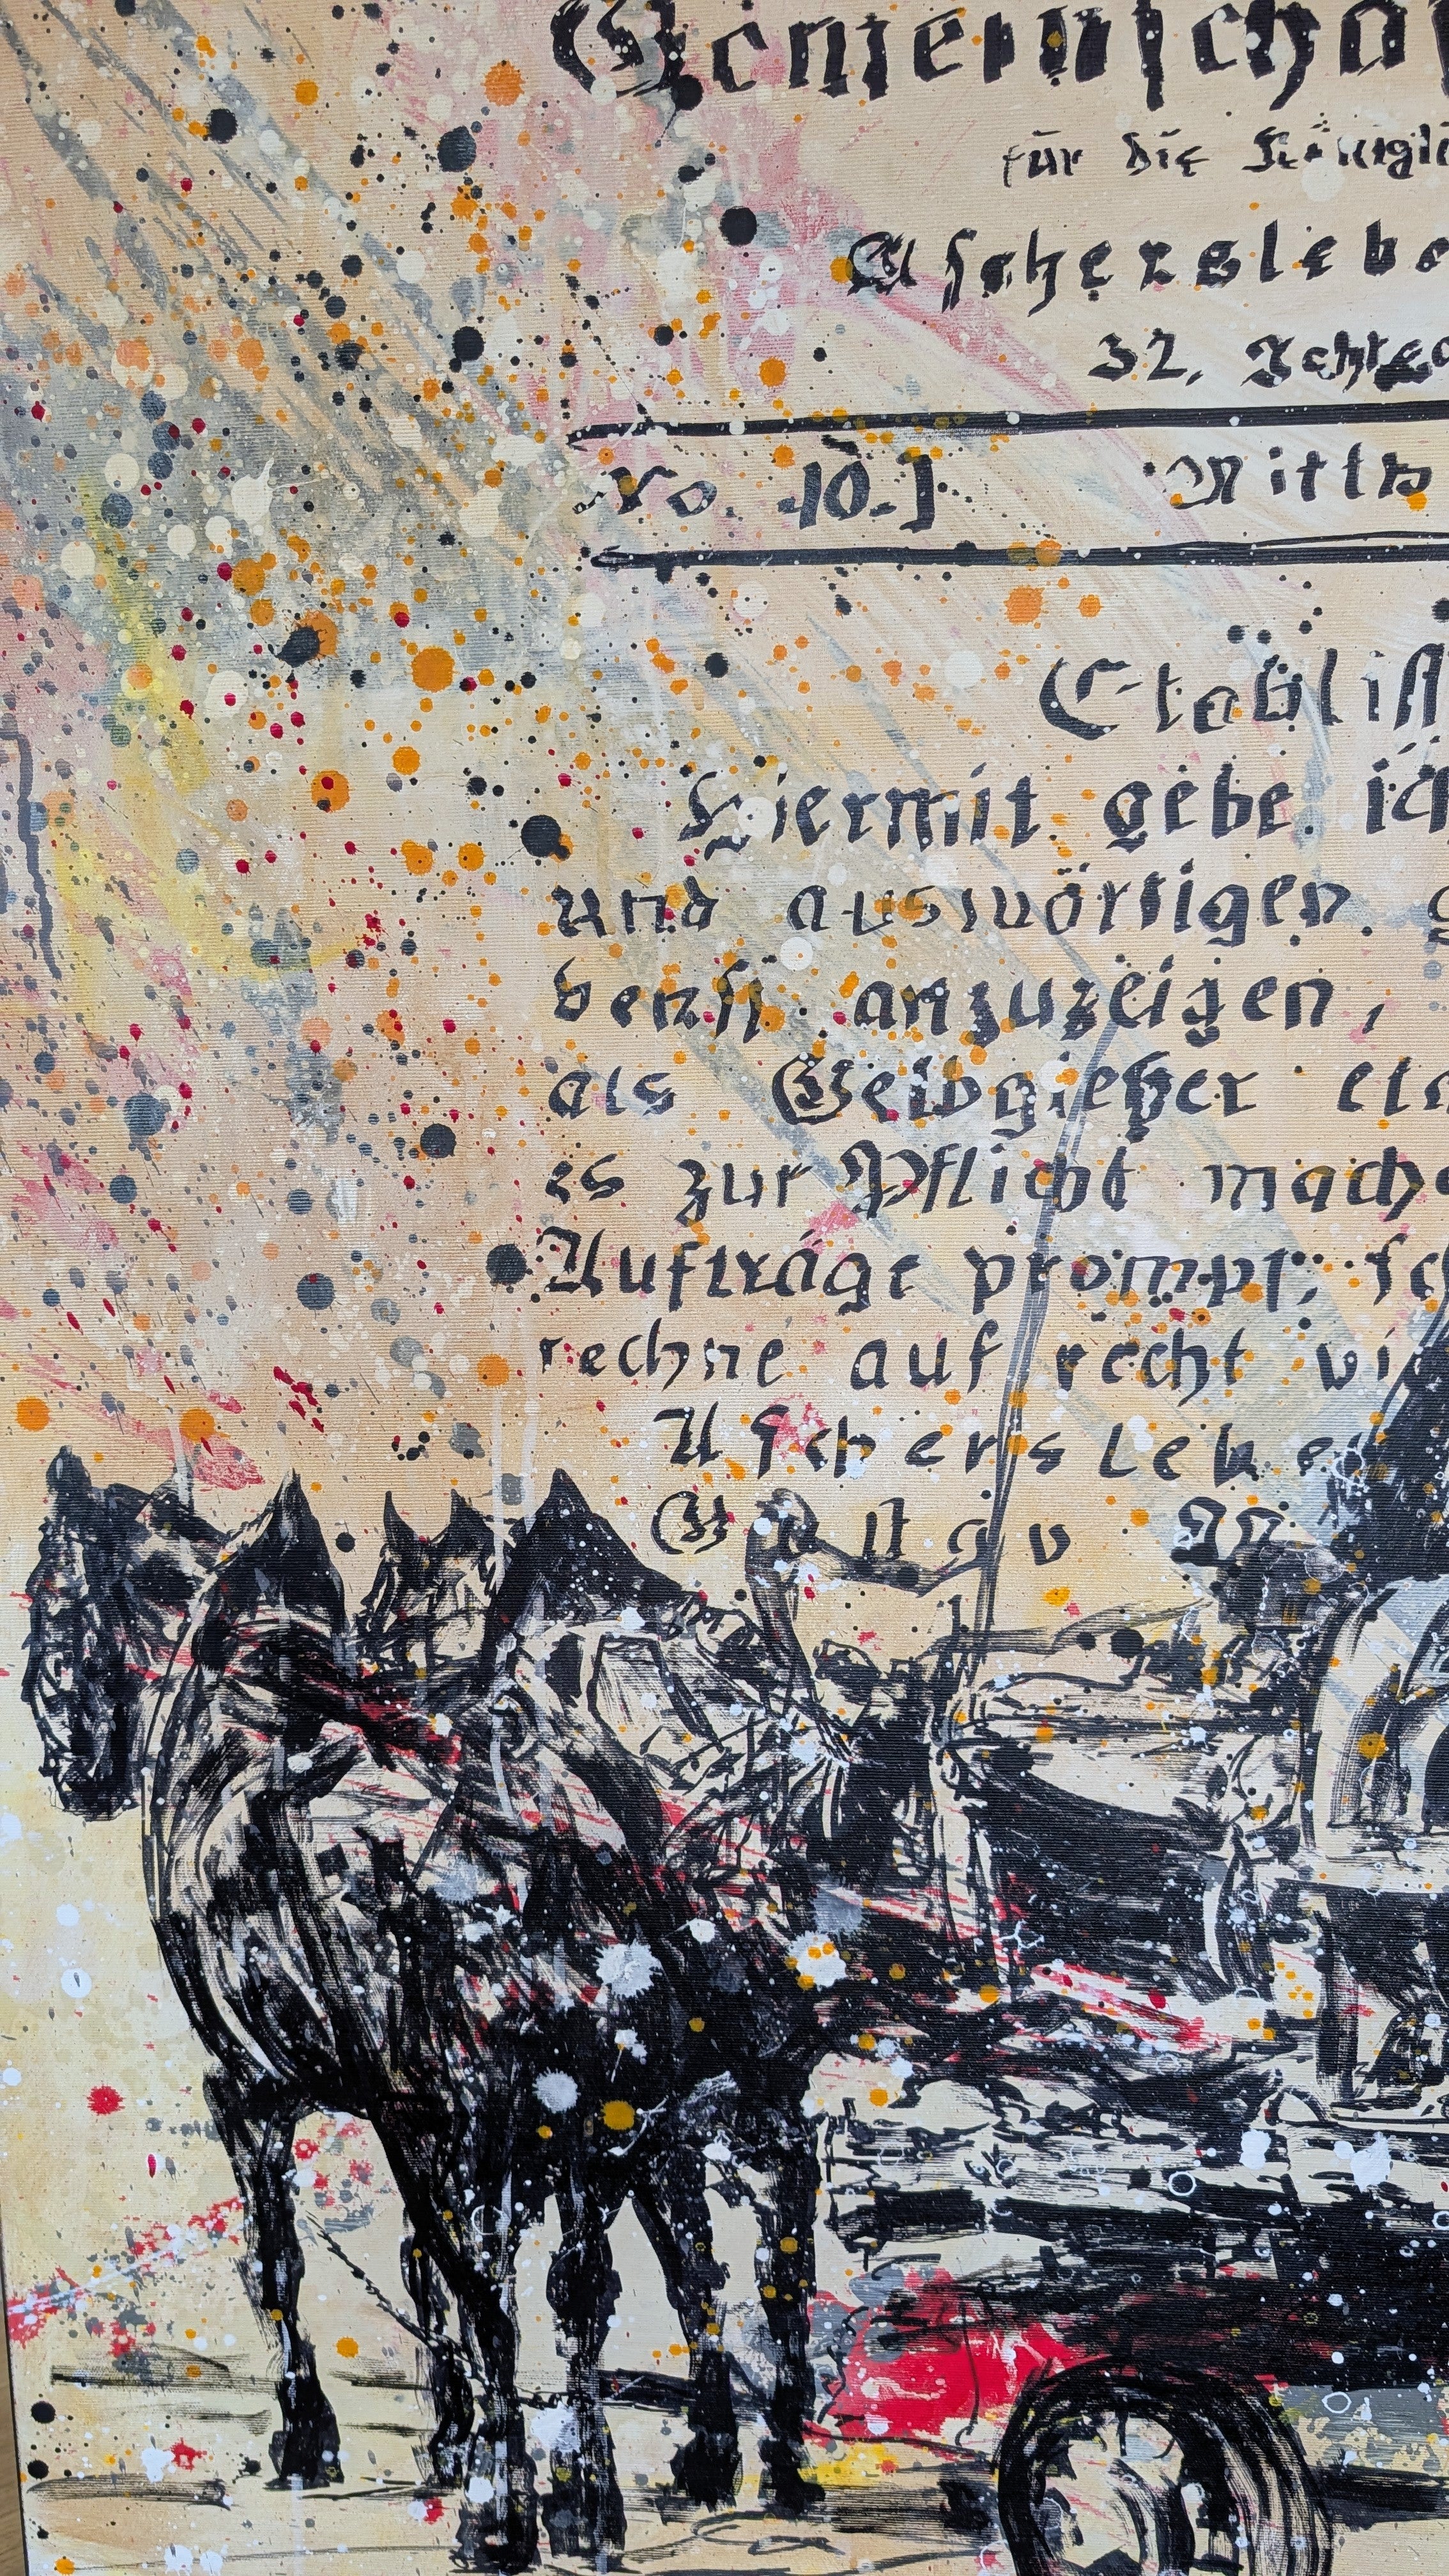 Gemeinscha
für die Königli
Aschersleb
32. Jahrga
No. 10.] Mittw
Etabliss
Hiermit gebe ich
und auswörtigen g
benst anzuzeigen,
als Gelbgießer eta
es zur Pflicht mache
Aufträge prompt, sc
rechne auf recht vi
Aschersleben